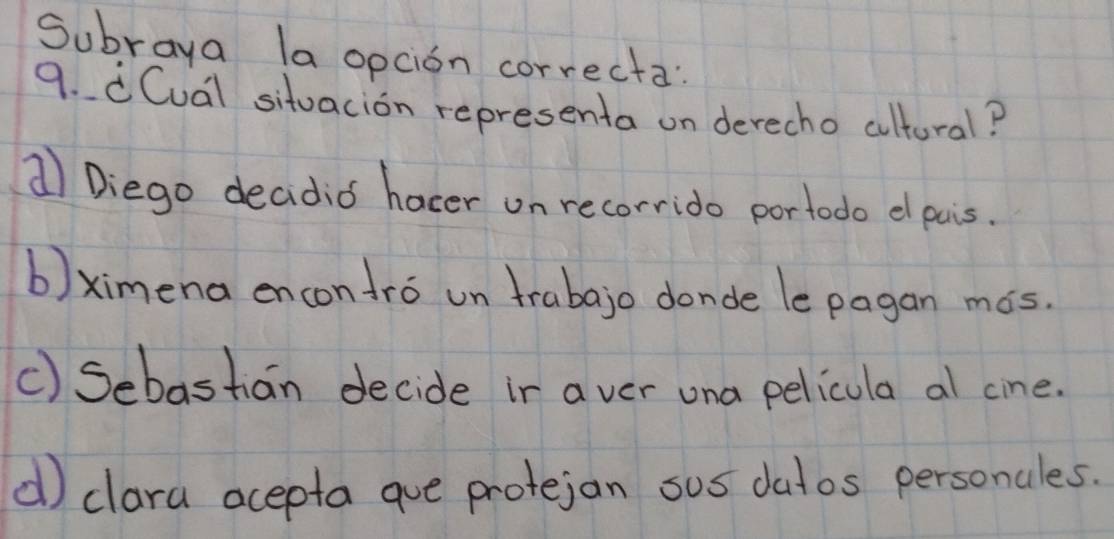 Subraya la opción correcta:
9._ ¿Cuál situación representa un derecho cultural?
a) Diego decidió hacer un recorrido por todo el pais.
b) ximena encontró un trabajo donde le pagan más.
c) Sebastián decide ir a ver una película al cine.
d) clara acepta que protejan sus datos personales.